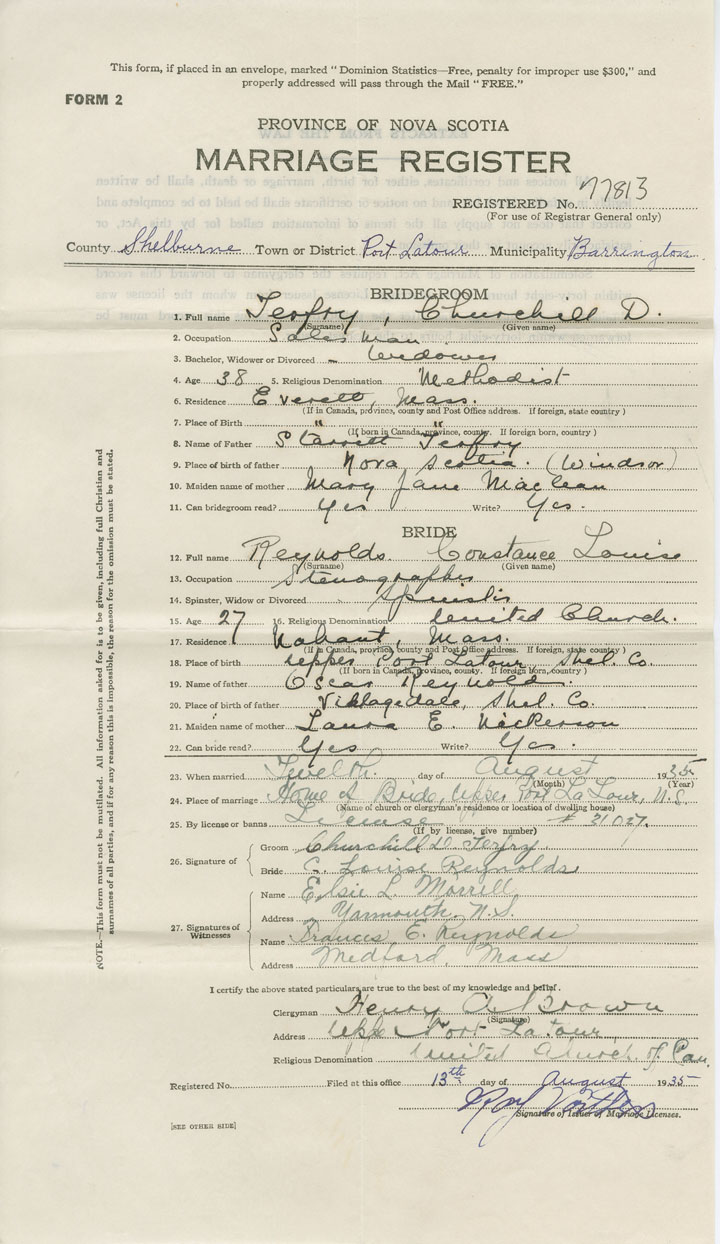 This form, if placed in an envelope, marked "Dominion Statistics—Free, penalty for improper use $300," and
properly addressed will pass through the Mail "FREE."
FORM 2
PROVINCE OF NOVA SCOTIA
MARRIAGE REGISTER
REGISTERED No. 77813
(For use of Registrar General only)
County Shelburne Town or District Port Latour Municipality Barrington
BRIDEGROOM
1. Full name Terfry, Churchill D.
(Surname) (Given name)
2. Occupation Sales man
3. Bachelor, Widower or Divorced – Widower
4. Age 38 5. Religious Denomination Methodist
6. Residence Everett, Mass.
(If in Canada, province, county and Post Office address. If foreign, state country)
7. Place of Birth " "
(If born in Canada, province, county. If foreign born, country)
8. Name of Father Starrett Terfry
9. Place of birth of father Nova Scotia. (Windsor)
10. Maiden name of mother Mary Jane Maclean
11. Can bridegroom read? Yes Write? Yes.
BRIDE
12. Full name Reynolds Constance Louise
(Surname) (Given name)
13. Occupation Stenographer
14. Spinster, Widow or Divorced Spinster
15. Age 27 16. Religious Denomination United Church.
17. Residence Nahant, Mass.
(If in Canada, province, county and Post Office address. If foreign, state country)
18. Place of birth Upper Port Latour, Shel. Co.
(If born in Canada, province, county. If foreign born, country)
19. Name of father Oscar Reynolds.
20. Place of birth of father Villagedale, Shel. Co.
21. Maiden name of mother Laura E. Nickerson
22. Can bride read? Yes Write? Yes.
23. When married Twelfth day of August 1935
(Month) (Year)
24. Place of marriage Home of Bride, Upper Port La Tour, N.S.
(Name of church or clergyman's residence or location of dwelling house)
25. By license or banns License # 31027.
(If by license, give number)
26. Signature of
Groom Churchill D. Terfry
Bride C. Louise Reynolds
27. Signatures of Witnesses
Name Elsie L. Morrell
Address Yarmouth, N.S.
Name Frances E. Reynolds
Address Medford, Mass
I certify the above stated particulars are true to the best of my knowledge and belief.
Clergyman Henry A. Brown
(Signature)
Address Upper Port Latour
Religious Denomination United Church of Can.
Registered No. Filed at this office 13th day of August 1935
Signature of Issuer of Marriage Licenses.
[SEE OTHER SIDE]
NOTE.—This form must not be mutilated. All information asked for is to be given, including full Christian and
surnames of all parties, and if for any reason this is impossible, the reason for the omission must be stated.